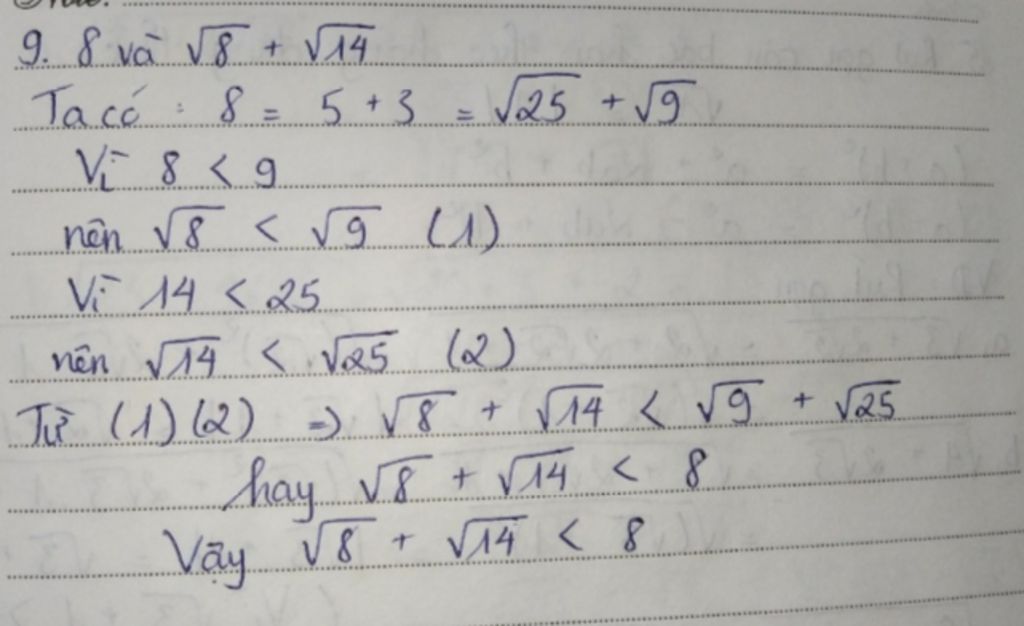 9. 8 và √8 + √14
Ta có : 8 = 5 + 3 = √25 + √9
Vì 8 < 9
nên √8 < √9 (1)
Vì 14 < 25
nên √14 < √25 (2)
Từ (1) (2) => √8 + √14 < √9 + √25
hay √8 + √14 < 8
Vậy √8 + √14 < 8